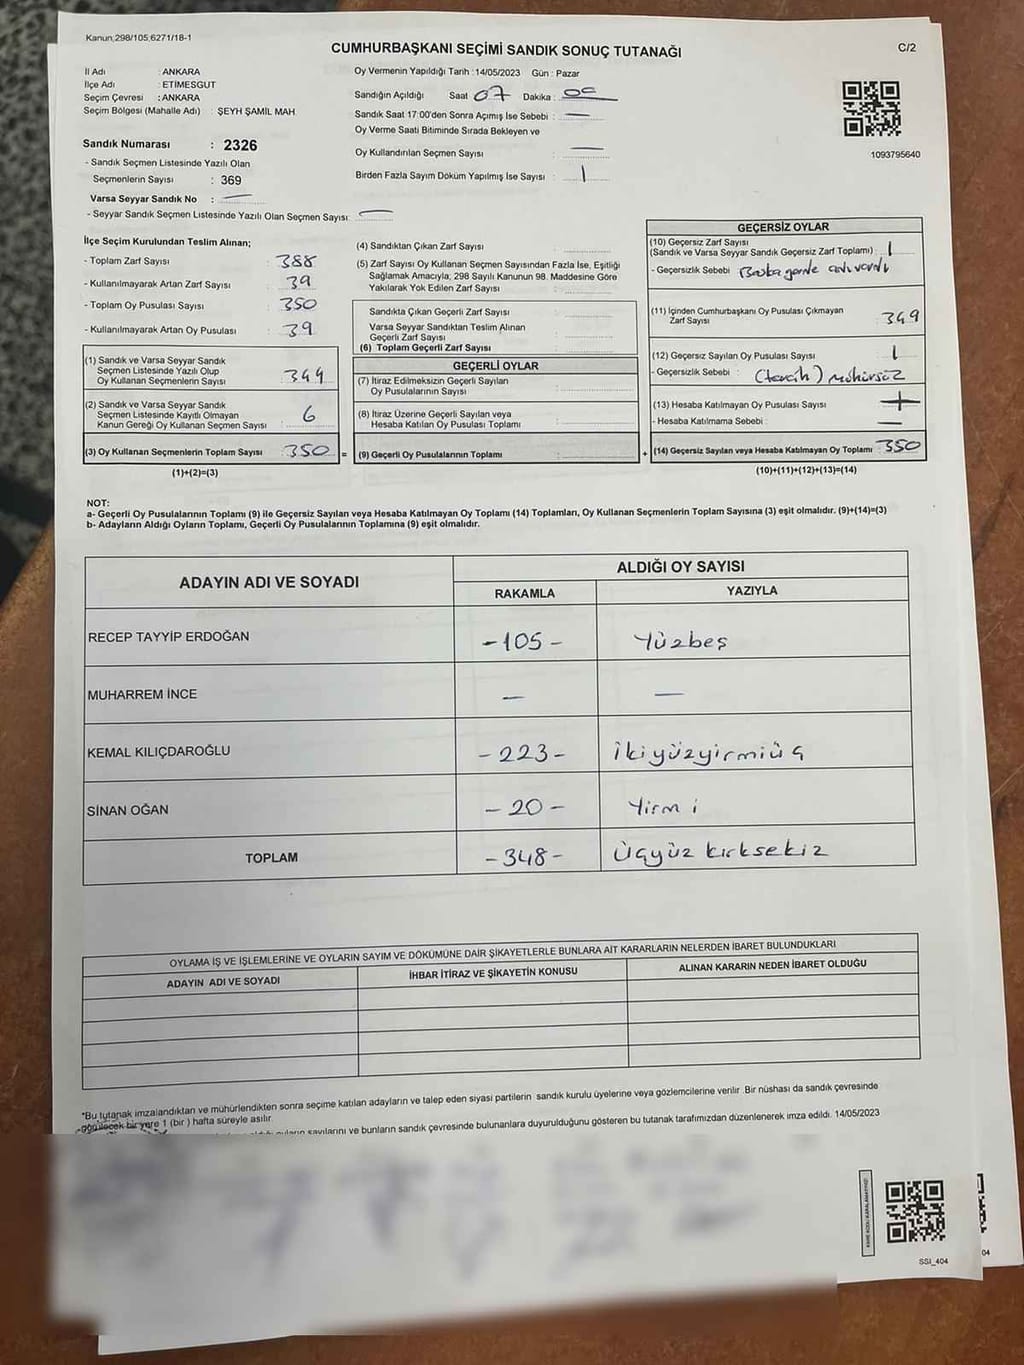 Kanun,298/105,6271/18-1
CUMHURBAŞKANI SEÇİMİ SANDIK SONUÇ TUTANAĞI
C/2
İl Adı : ANKARA
İlçe Adı : ETİMESGUT
Seçim Çevresi : ANKARA
Seçim Bölgesi (Mahalle Adı) : ŞEYH ŞAMİL MAH
Sandık Numarası : 2326
- Sandık Seçmen Listesinde Yazılı Olan
Seçmenlerin Sayısı : 369
Varsa Seyyar Sandık No : —
- Seyyar Sandık Seçmen Listesinde Yazılı Olan Seçmen Sayısı: —
Oy Vermenin Yapıldığı Tarih : 14/05/2023 Gün : Pazar
Sandığın Açıldığı Saat 07 Dakika :
Sandık Saat 17:00'den Sonra Açımış İse Sebebi : —
Oy Verme Saati Bitiminde Sırada Bekleyen ve
Oy Kullandırılan Seçmen Sayısı : —
Birden Fazla Sayım Döküm Yapılmış İse Sayısı : 1
1093795640
İlçe Seçim Kurulundan Teslim Alınan;
- Toplam Zarf Sayısı : 388
- Kullanılmayarak Artan Zarf Sayısı : 39
- Toplam Oy Pusulası Sayısı : 350
- Kullanılmayarak Artan Oy Pusulası : 39
(1) Sandık ve Varsa Seyyar Sandık
Seçmen Listesinde Yazılı Olup
Oy Kullanan Seçmenlerin Sayısı : 344
(2) Sandık ve Varsa Seyyar Sandık
Seçmen Listesinde Kayıtlı Olmayan
Kanun Gereği Oy Kullanan Seçmen Sayısı : 6
(3) Oy Kullanan Seçmenlerin Toplam Sayısı : 350 =
(1)+(2)=(3)
(4) Sandıktan Çıkan Zarf Sayısı :
(5) Zarf Sayısı Oy Kullanan Seçmen Sayısından Fazla İse, Eşitliği
Sağlamak Amacıyla, 298 Sayılı Kanunun 98. Maddesine Göre
Yakılarak Yok Edilen Zarf Sayısı :
Sandıkta Çıkan Geçerli Zarf Sayısı :
Varsa Seyyar Sandıktan Teslim Alınan
Geçerli Zarf Sayısı :
(6) Toplam Geçerli Zarf Sayısı :
GEÇERLİ OYLAR
(7) İtiraz Edilmeksizin Geçerli Sayılan
Oy Pusulalarının Sayısı :
(8) İtiraz Üzerine Geçerli Sayılan veya
Hesaba Katılan Oy Pusulası Toplamı :
(9) Geçerli Oy Pusulalarının Toplamı : +
GEÇERSİZ OYLAR
(10) Geçersiz Zarf Sayısı
(Sandık ve Varsa Seyyar Sandık Geçersiz Zarf Toplamı) : 1
- Geçersizlik Sebebi :
(11) İçinden Cumhurbaşkanı Oy Pusulası Çıkmayan
Zarf Sayısı : 349
(12) Geçersiz Sayılan Oy Pusulası Sayısı : 1
- Geçersizlik Sebebi : (tercih) mühürsüz
(13) Hesaba Katılmayan Oy Pusulası Sayısı :
- Hesaba Katılmama Sebebi : —
(14) Geçersiz Sayılan veya Hesaba Katılmayan Oy Toplamı : 350
(10)+(11)+(12)+(13)=(14)
NOT:
a- Geçerli Oy Pusulalarının Toplamı (9) ile Geçersiz Sayılan veya Hesaba Katılmayan Oy Toplamı (14) Toplamları, Oy Kullanan Seçmenlerin Toplam Sayısına (3) eşit olmalıdır. (9)+(14)=(3)
b- Adayların Aldığı Oyların Toplamı, Geçerli Oy Pusulalarının Toplamına (9) eşit olmalıdır.
ADAYIN ADI VE SOYADI
ALDIĞI OY SAYISI
RAKAMLA
YAZIYLA
RECEP TAYYİP ERDOĞAN -105- Yüzbeş
MUHARREM İNCE — —
KEMAL KILIÇDAROĞLU -223- İkiyüzyirmiüç
SİNAN OĞAN -20- Yirmi
TOPLAM -348- Üçyüz kırksekiz
OYLAMA İŞ VE İŞLEMLERİNE VE OYLARIN SAYIM VE DÖKÜMÜNE DAİR ŞİKAYETLERLE BUNLARA AİT KARARLARIN NELERDEN İBARET BULUNDUKLARI
ADAYIN ADI VE SOYADI
İHBAR İTİRAZ VE ŞİKAYETİN KONUSU
ALINAN KARARIN NEDEN İBARET OLDUĞU
*Bu tutanak imzalandıktan ve mühürlendikten sonra seçime katılan adayların ve talep eden siyasi partilerin sandık kurulu üyelerine veya gözlemcilerine verilir .Bir nüshası da sandık çevresinde
görülecek bir yere 1 (bir ) hafta süreyle asılır.
sayılarını ve bunların sandık çevresinde bulunanlara duyurulduğunu gösteren bu tutanak tarafımızdan düzenlenerek imza edildi. 14/05/2023
SSI_404
04